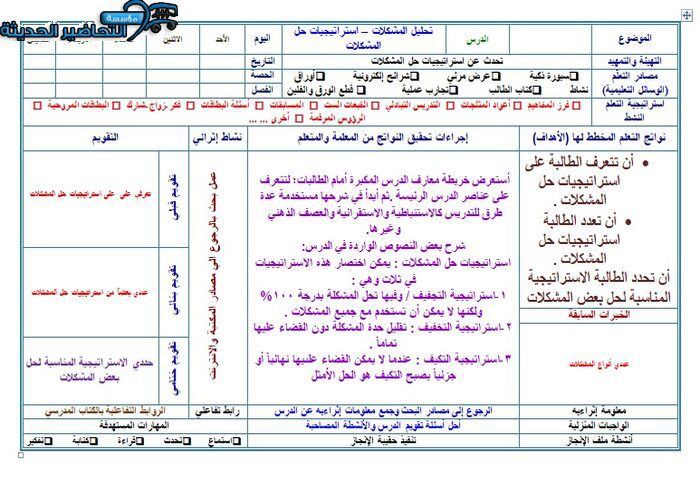 مؤسسة
التحاضير الحديثة
الموضوع
تحليل المشكلات – استراتيجيات حل
المشكلات
الدرس
اليوم
الأحد
الاثنين
التهيئة والتمهيد
تحدث عن استراتيجيات حل المشكلات
التاريخ
مصادر التعلم
(الوسائل التعليمية)
سبورة ذكية
عرض مرئي
شرائح إلكترونية
أوراق
نشاط
كتاب الطالب
تجارب عملية
قطع الورق والفلين
الحصة
الفصل
استراتيجية التعلم
النشط
فرز المفاهيم
أعواد المثلجات
التدريس التبادلي
القبعات الست
المسابقات
أسئلة البطاقات
فكر-زواج-شارك
البطاقات المروحية
الرؤوس المرقمة
أخرى ... ...
نواتج التعلم المخطط لها (الأهداف)
إجراءات تحقيق النواتج من المعلمة والمتعلم
نشاط إثرائي
التقويم
أن تتعرف الطالبة على
استراتيجيات حل
المشكلات .
أن تعدد الطالبة
استراتيجيات حل
المشكلات .
أن تحدد الطالبة الاستراتيجية
المناسبة لحل بعض المشكلات
الخبرات السابقة
عددي أنواع المشكلات
أستعرض خريطة معارف الدرس المكبرة أمام الطالبات؛ لتتعرف
على عناصر الدرس الرئيسة .ثم أبدأ في شرحها مستخدمة عدة
طرق للتدريس كالاستنباطية والاستقرائية والعصف الذهني
وغيرها.
شرح بعض النصوص الواردة في الدرس:
استراتيجيات حل المشكلات : يمكن اختصار هذه الاستراتيجيات
في ثلاث وهي :
١-استراتيجية التجفيف / وفيها تحل المشكلة بدرجة ١٠٠%
ولكنها لا يمكن أن تستخدم مع جميع المشكلات .
٢-استراتيجية التخفيف : تقليل حدة المشكلة دون القضاء عليها
تماماً .
٣-استراتيجية التكيف : عندما لا يمكن القضاء عليها نهائياً أو
جزئياً يصبح التكيف هو الحل الأمثل
عمل بحث بالرجوع الي مصادر المكتبة والانترنت
تقويم قبلي
تعرفي على على استراتيجيات حل المشكلات
تقويم بنائي
عددي بعضاً من استراتيجيات حل المشكلات
تقويم ختامي
حددي الاستراتيجية المناسبة لحل
بعض المشكلات
معلومة إثرائيه
الرجوع إلى مصادر البحث وجمع معلومات إثراءيه عن الدرس
رابط تفاعلي
الروابط التفاعلية بالكتاب المدرسي
الواجبات المنزلية
أحل أسئلة تقويم الدرس والأنشطة المصاحبة
المهارات المستهدفة
أنشطة ملف الإنجاز
تنفيذ حقيبة الإنجاز
استماع
تحدث
قراءة
كتابة
تفكير